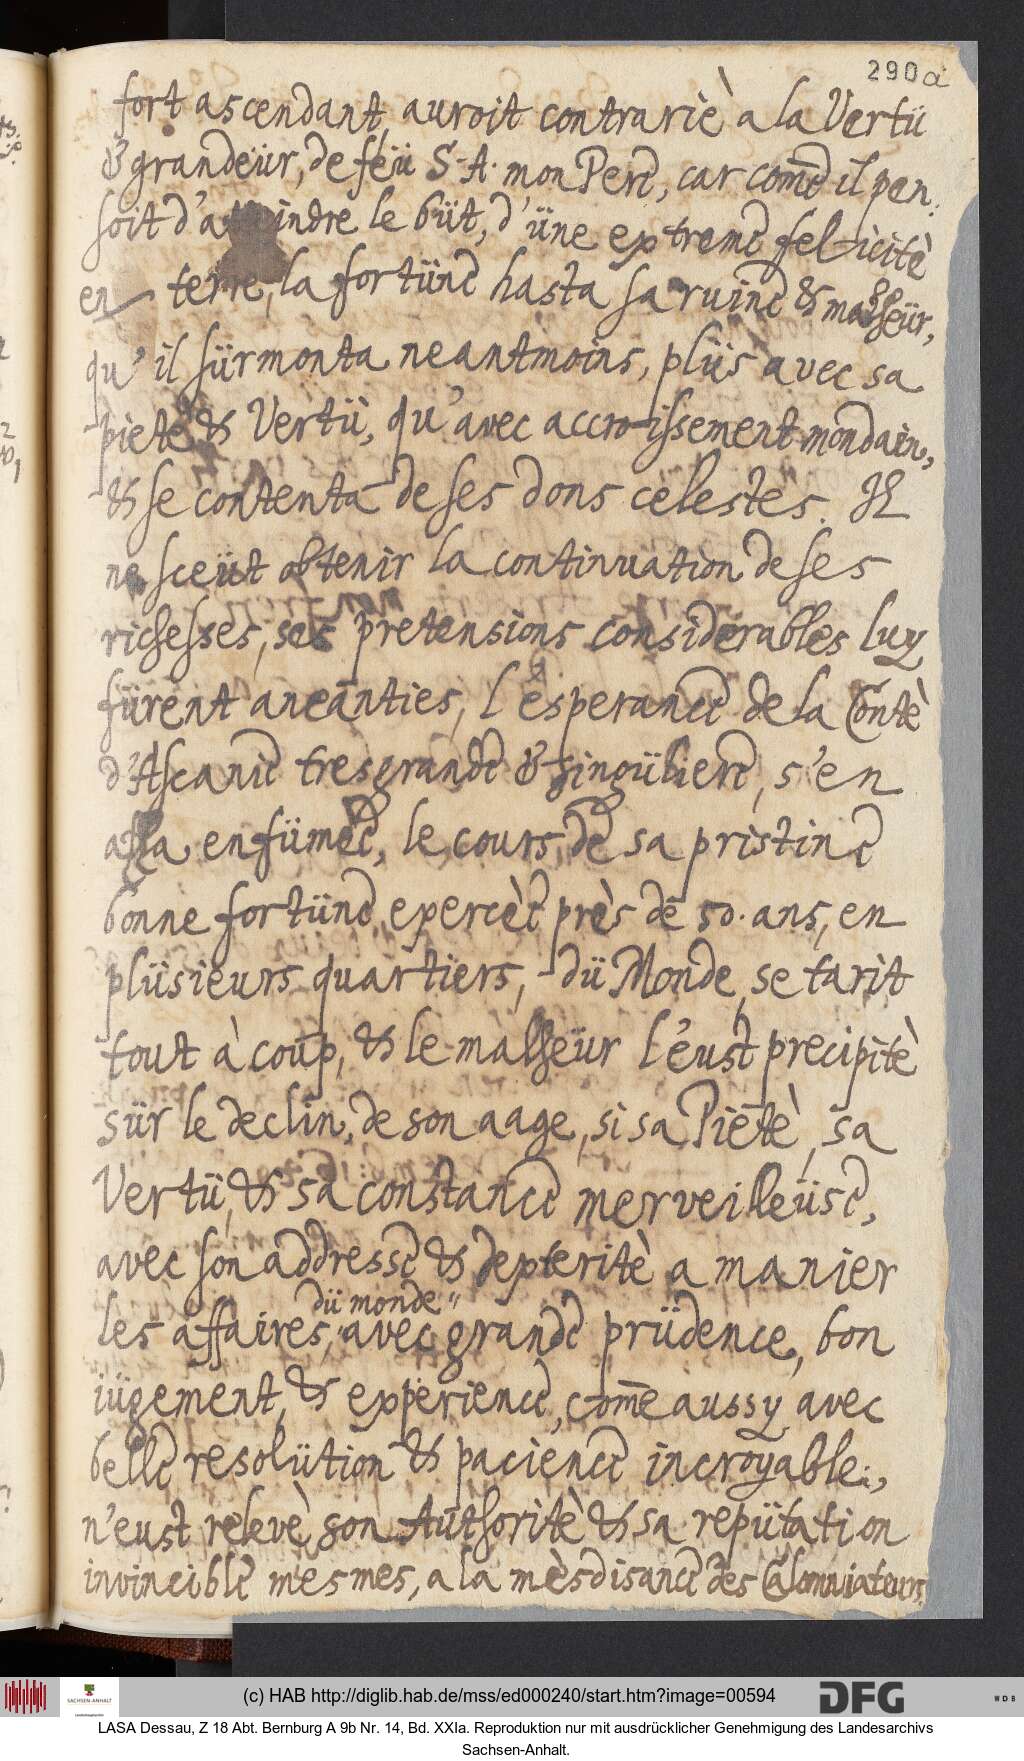 290a
fort ascendant, auroit contrariè a la Vertü
& grandeür, de feü S. A. mon Pere, car comē il pen:
soit d'atteindre le büt, d'üne extreme felicitè
en terre, la fortüne hasta sa ruine & malheür,
qu'il sürmonta neantmoins, plüs avec sa
pietè & Vertü, qu'avec accroissement mondain,
& se contenta de ses dons celestes. Il
ne sceüt obtenir la continuation de ses
richesses, ses pretensions considerables luy
fürent aneanties, l'esperance de la Contè
d'Ascanie tresgrande & singüliere, s'en
alla enfümee, le cours de sa pristine
bonne fortüne exercèe près de 50. ans, en
plüsieurs quartiers, dü Monde se tarit
tout à coup, & le malheür l'eust precipitè
sür le declin, de son aage, si sa Pietè, sa
Vertü, & sa constance merveilleüse,
avec son addresse & dexteritè a manier
dü monde"
les affaires, "avec grande prüdence, bon
iügement, & experience, comē aussy avec
belle resolütion & pacience incroyable.,
n'eust relevè son Authoritè & sa repütation
invincible mesmes, a la mèsdisance des Calomniateurs,
(c) HAB http://diglib.hab.de/mss/ed000240/start.htm?image=00594
SACHSEN-ANHALT
DFG
WDB
LASA Dessau, Z 18 Abt. Bernburg A 9b Nr. 14, Bd. XXIa. Reproduktion nur mit ausdrücklicher Genehmigung des Landesarchivs
Sachsen-Anhalt.